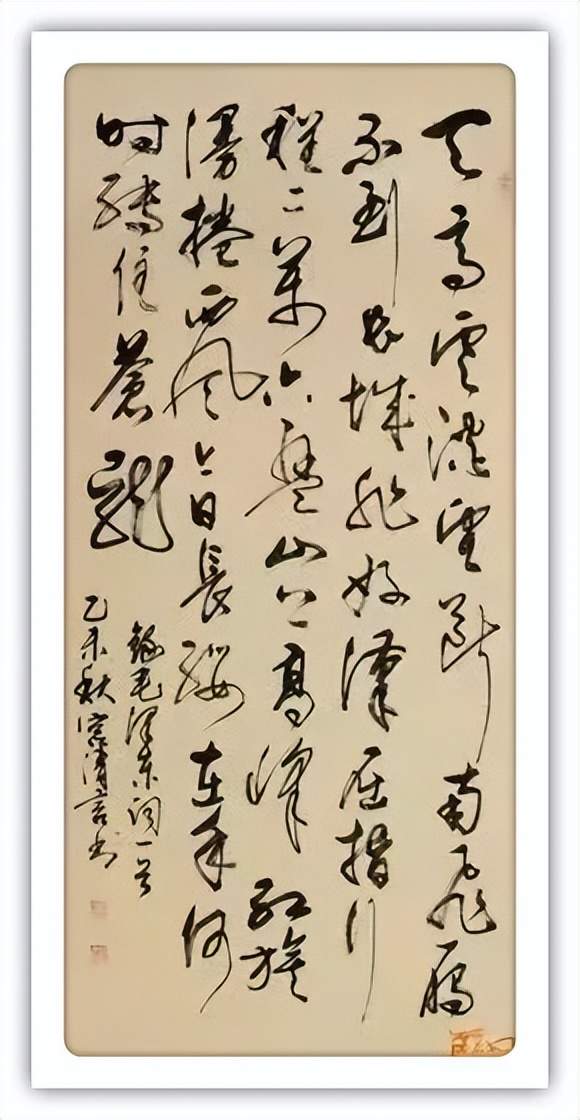 天高雲淡望斷南飛雁
不到長城非好漢屈指行
程二萬六盤山上高峰紅旗
漫捲西風今日長纓在手何
時縛住蒼龍
錄毛澤東詞一首
乙未秋清言书